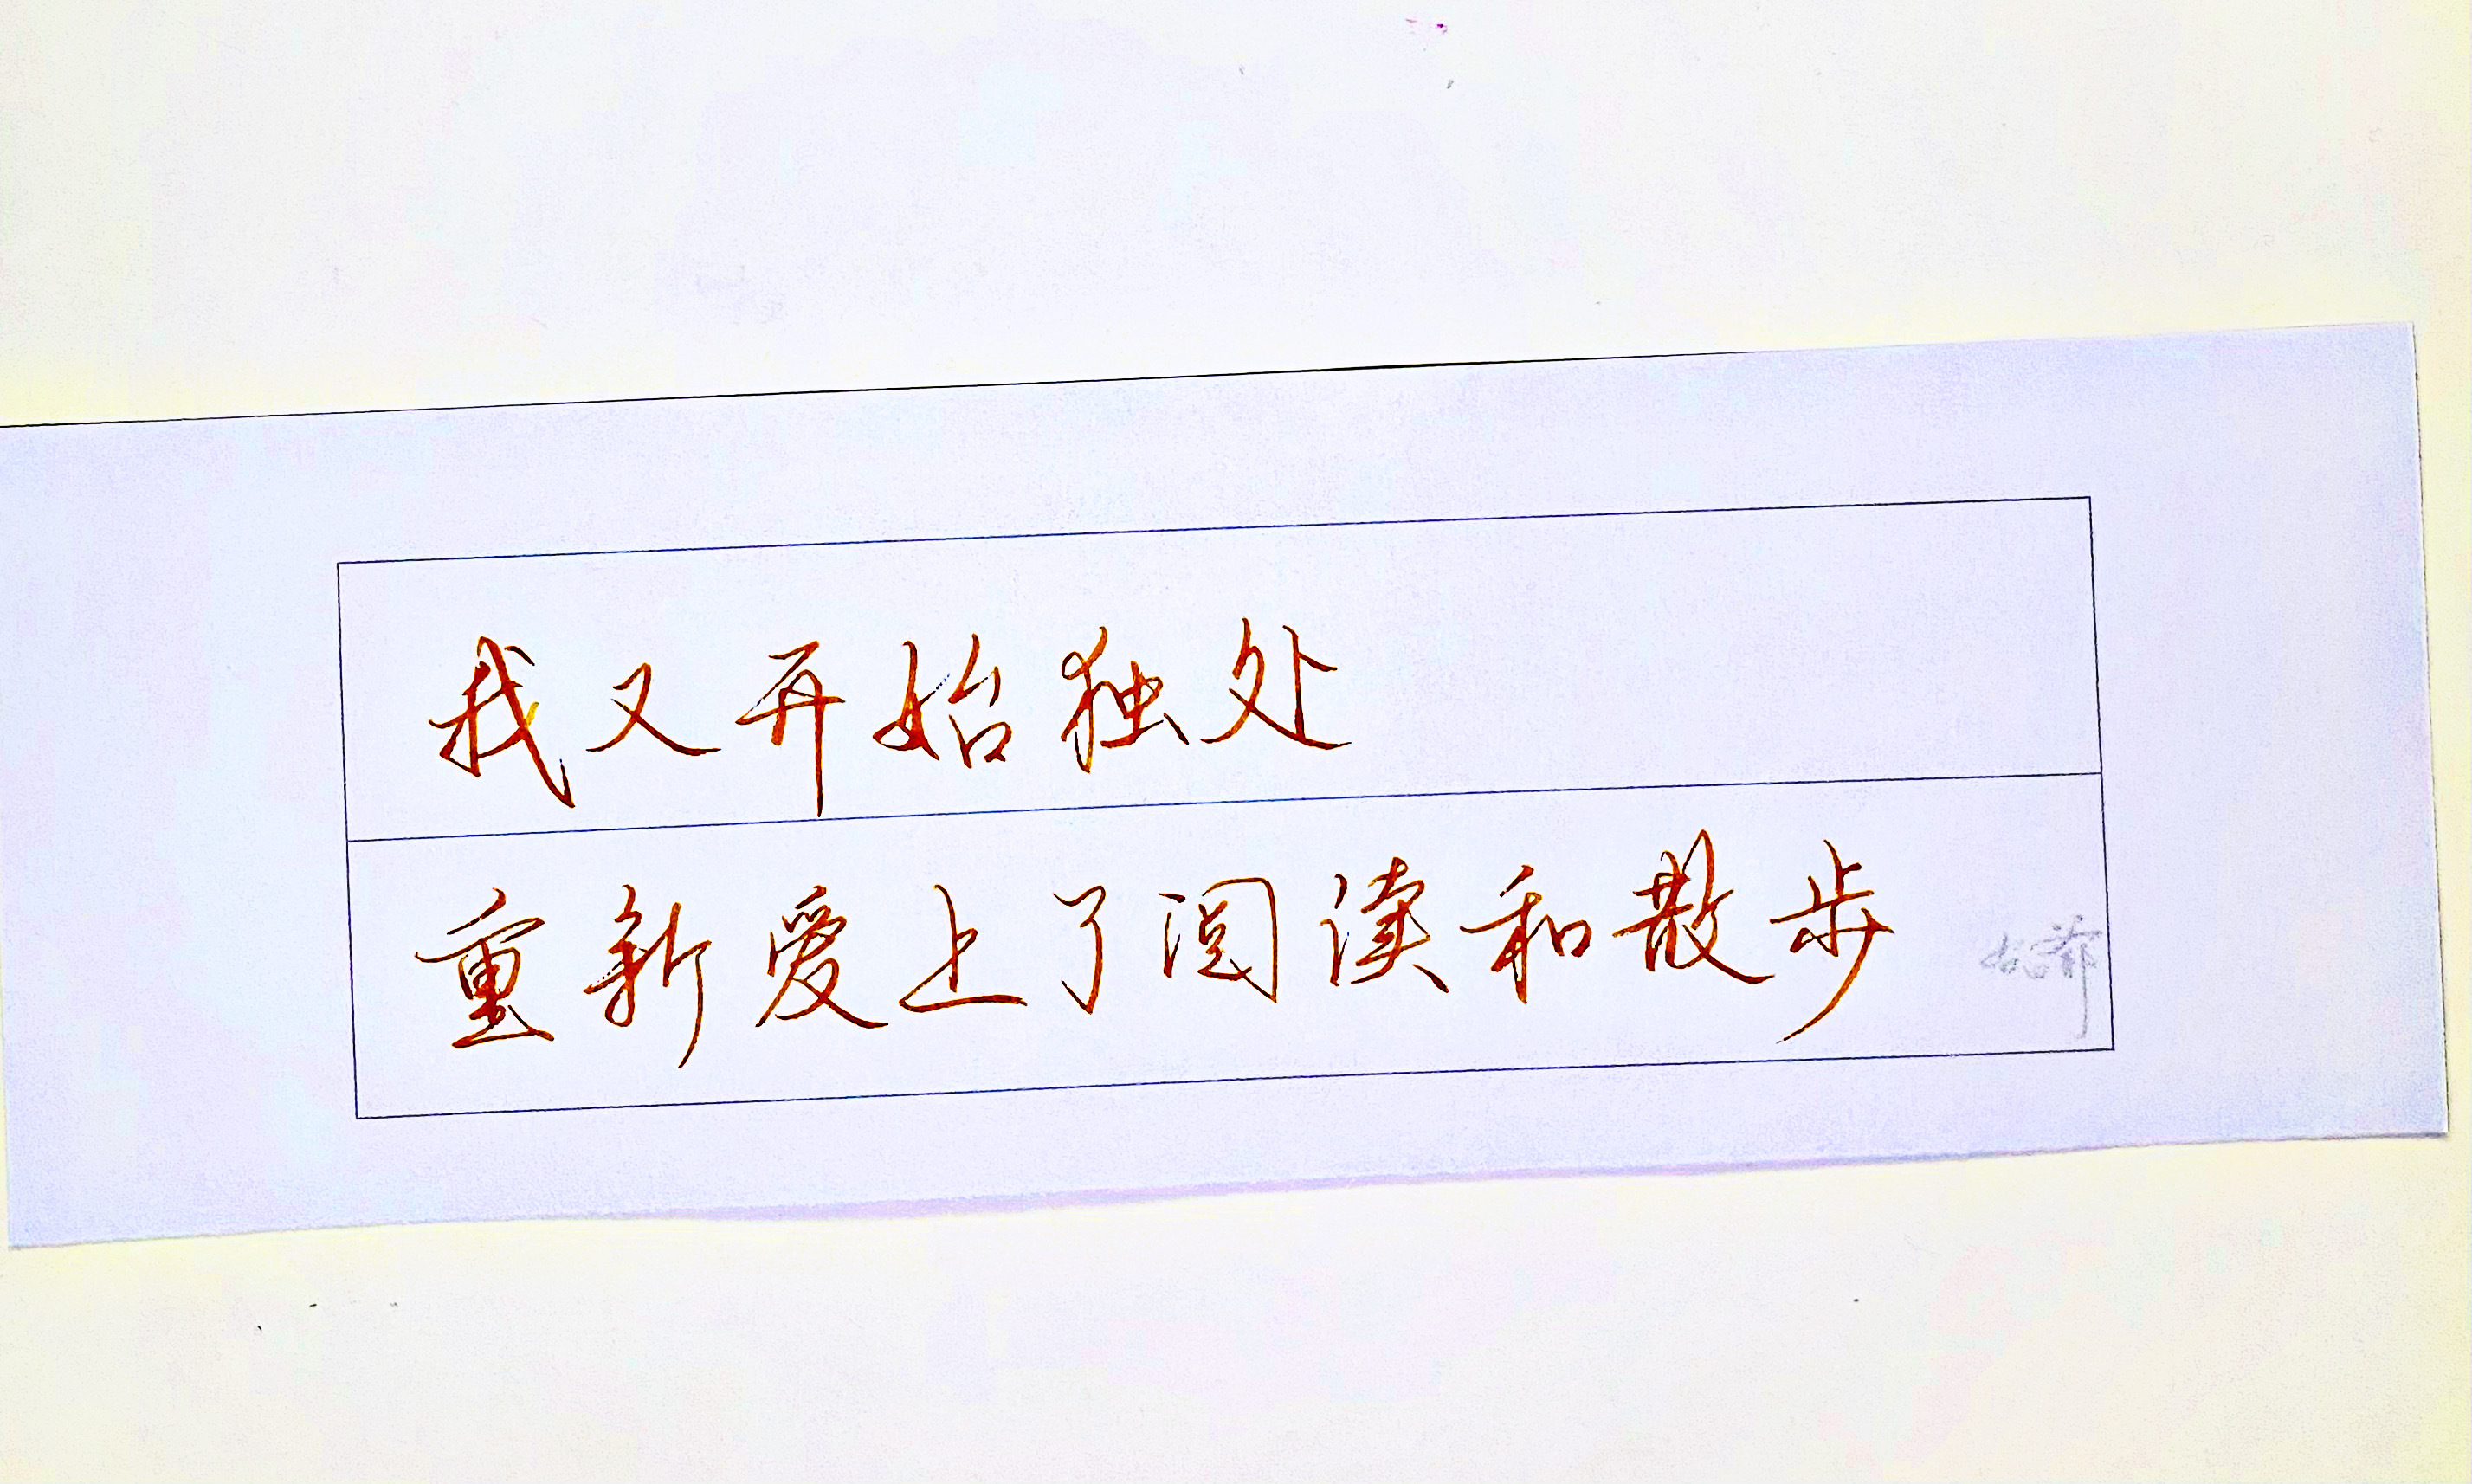 我又开始独处
重新爱上了阅读和散步